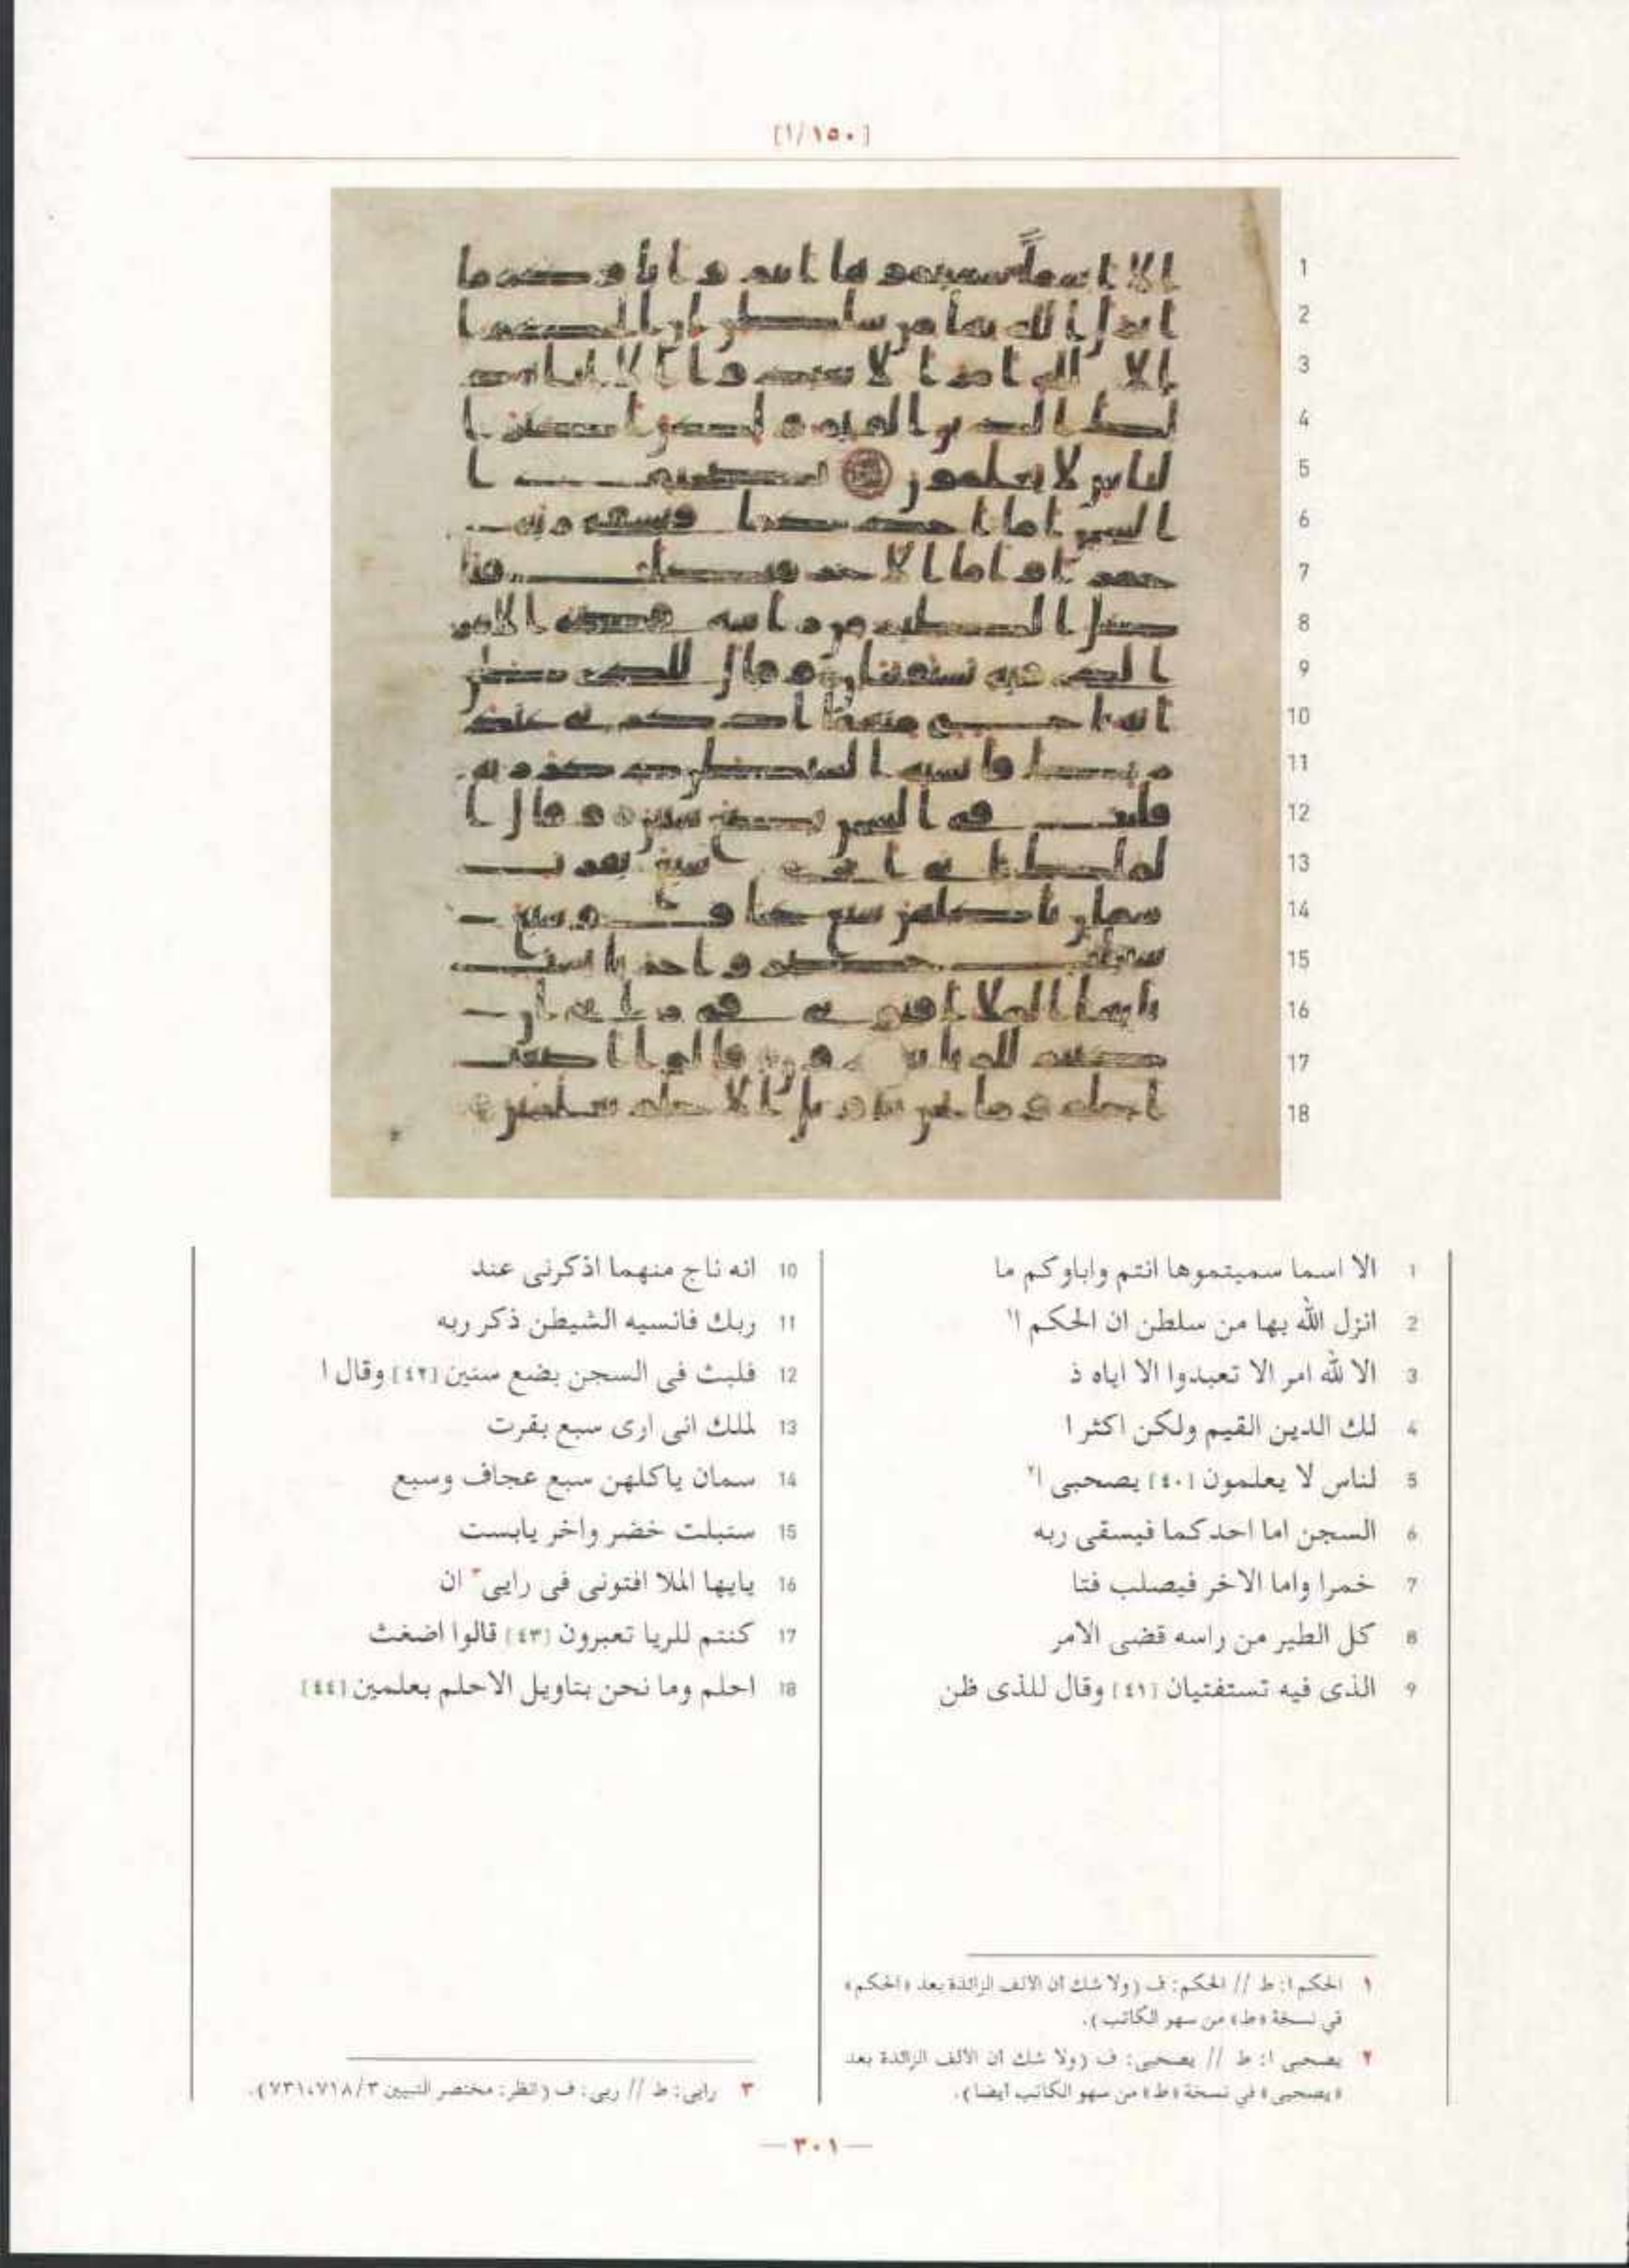 [١/١٥٠]
1 الا اسما سميتموها انتم واباوكم ما
2 انزل الله بها من سلطن ان الحكم ا١
3 الا لله امر الا تعبدوا الا اياه ذ
4 لك الدين القيم ولكن اكثر ا
5 لناس لا يعلمون [٤٠] يصحبى ا٢
6 السجن اما احدكما فيسقى ربه
7 خمرا واما الاخر فيصلب فتا
8 كل الطير من راسه قضى الامر
9 الذى فيه تستفتيان [٤١] وقال للذى ظن
10 انه ناج منهما اذكرنى عند
11 ربك فانسيه الشيطن ذكر ربه
12 فلبث فى السجن بضع سنين [٤٢] وقال ا
13 لملك انى ارى سبع بقرت
14 سمان ياكلهن سبع عجاف وسبع
15 سنبلت خضر واخر يابست
16 يايها الملا افتونى فى رايى٣ ان
17 كنتم للريا تعبرون [٤٣] قالوا اضغث
18 احلم وما نحن بتاويل الاحلم بعلمين [٤٤]
١ الحكم ا: ط // الحكم: ف (ولا شك ان الالف الزائدة بعد «الحكم»
في نسخة «ط» من سهو الكاتب).
٢ يصحبى ا: ط // يصحبى: ف (ولا شك ان الالف الزائدة بعد
«يصحبى» في نسخة «ط» من سهو الكاتب أيضا).
٣ رايى: ط // ريى: ف (انظر: مختصر التبيين ٣/٧١٨، ٧٣١).
— ٣٠١ —